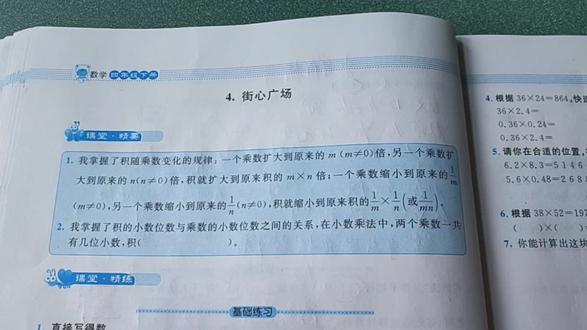 数学 四年级下册
4. 街心广场
课堂·精要
1. 我掌握了积随乘数变化的规律：一个乘数扩大到原来的 m (m≠0)倍，另一个乘数扩
大到原来的 n(n≠0)倍，积就扩大到原来积的 m×n 倍；一个乘数缩小到原来的1/m
(m≠0)，另一个乘数缩小到原来的1/n(n≠0)，积就缩小原来积的1/m×1/n(或1/mn)。
2. 我掌握了积的小数位数与乘数的小数位数之间的关系，在小数乘法中，两个乘数一共
有几位小数，积( )。
课堂·精练
基础练习
1. 直接写得数
4. 根据 36×24=864，快速
36×2.4=
0.36×0.24=
0.36×2.4=
5. 请你在合适的位置
6.2×8.3=5 1 4 6
5.6×0.48=2 6 8
6. 根据 38×52=197
( )×( )
7. 你能计算出这块